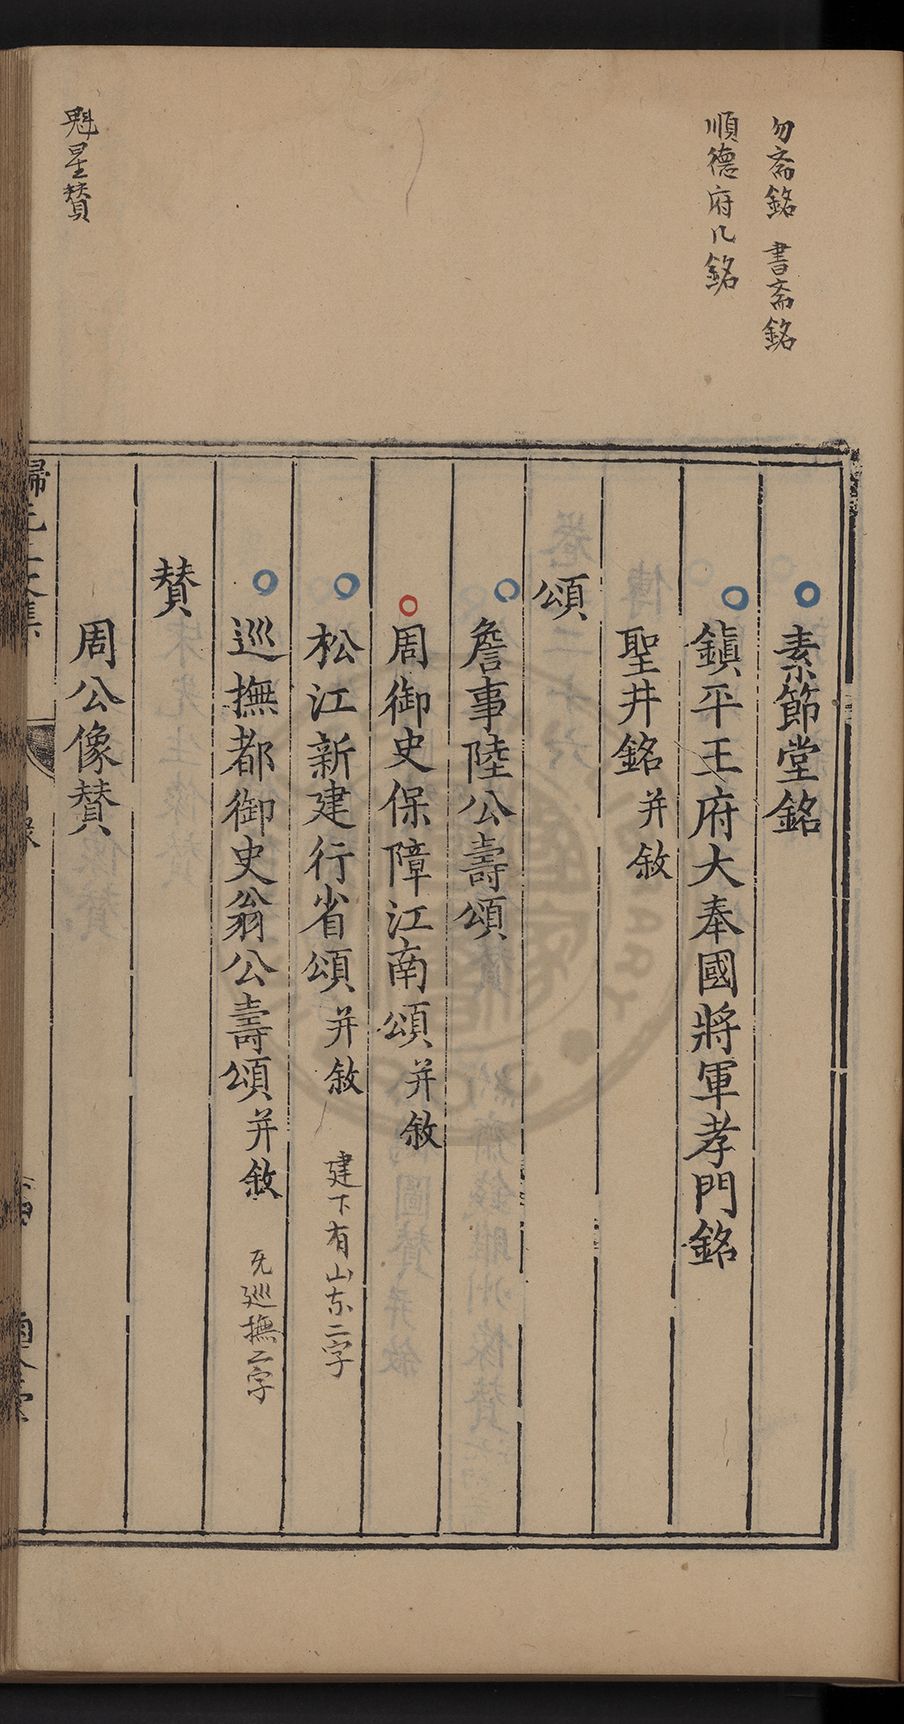 勿斋銘 書斋銘
順德府几銘
魁星賛
素節堂銘
鎮平王府大奉國將軍孝門銘
聖井銘并敘
頌
詹事陸公壽頌
周御史保障江南頌并敘
松江新建行省頌并敘 建下有山东二字
巡撫都御史翁公壽頌并敘 无巡撫二字
賛
周公像賛